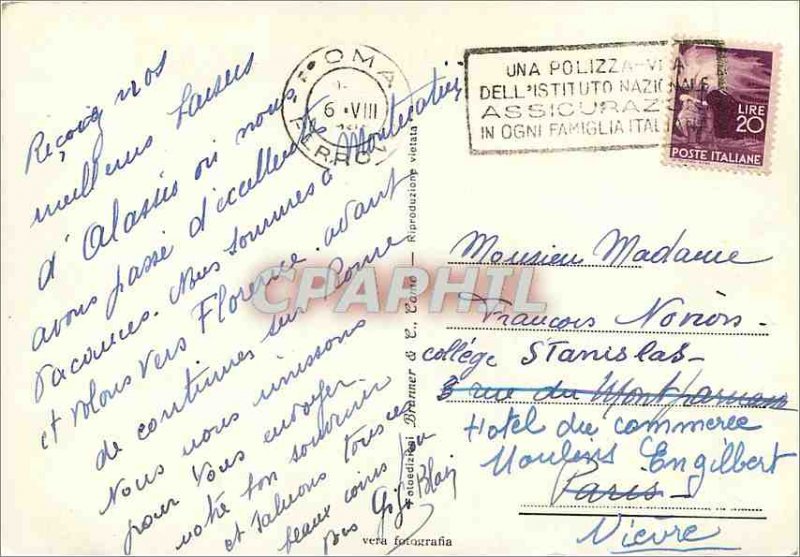 Reçevez nos
meilleurs baisers
d'Alassio où nous
avons passé d'excellentes
vacances. Nous sommes à Montecatini
et volons vers Florence avant
de continuer sur Rome
Nous nous unissons
pour vous envoyer
notre bon souvenir
et saluons tous ces
beaux coins
Gigi
ROMA
FERROV
6 · VIII
UNA POLIZZA-VITA
DELL'ISTITUTO NAZIONALE
ASSICURAZIONI
IN OGNI FAMIGLIA ITALIANA
LIRE
20
POSTE ITALIANE
Fotoedizioni Brunner & C., Como — Riproduzione vietata
vera fotografia
CPAPHIL
Monsieur Madame
François
collège Stanislas-
3 rue du Montparnasse
Hotel du commerce
Moulins Engilbert
Paris-
Nièvre